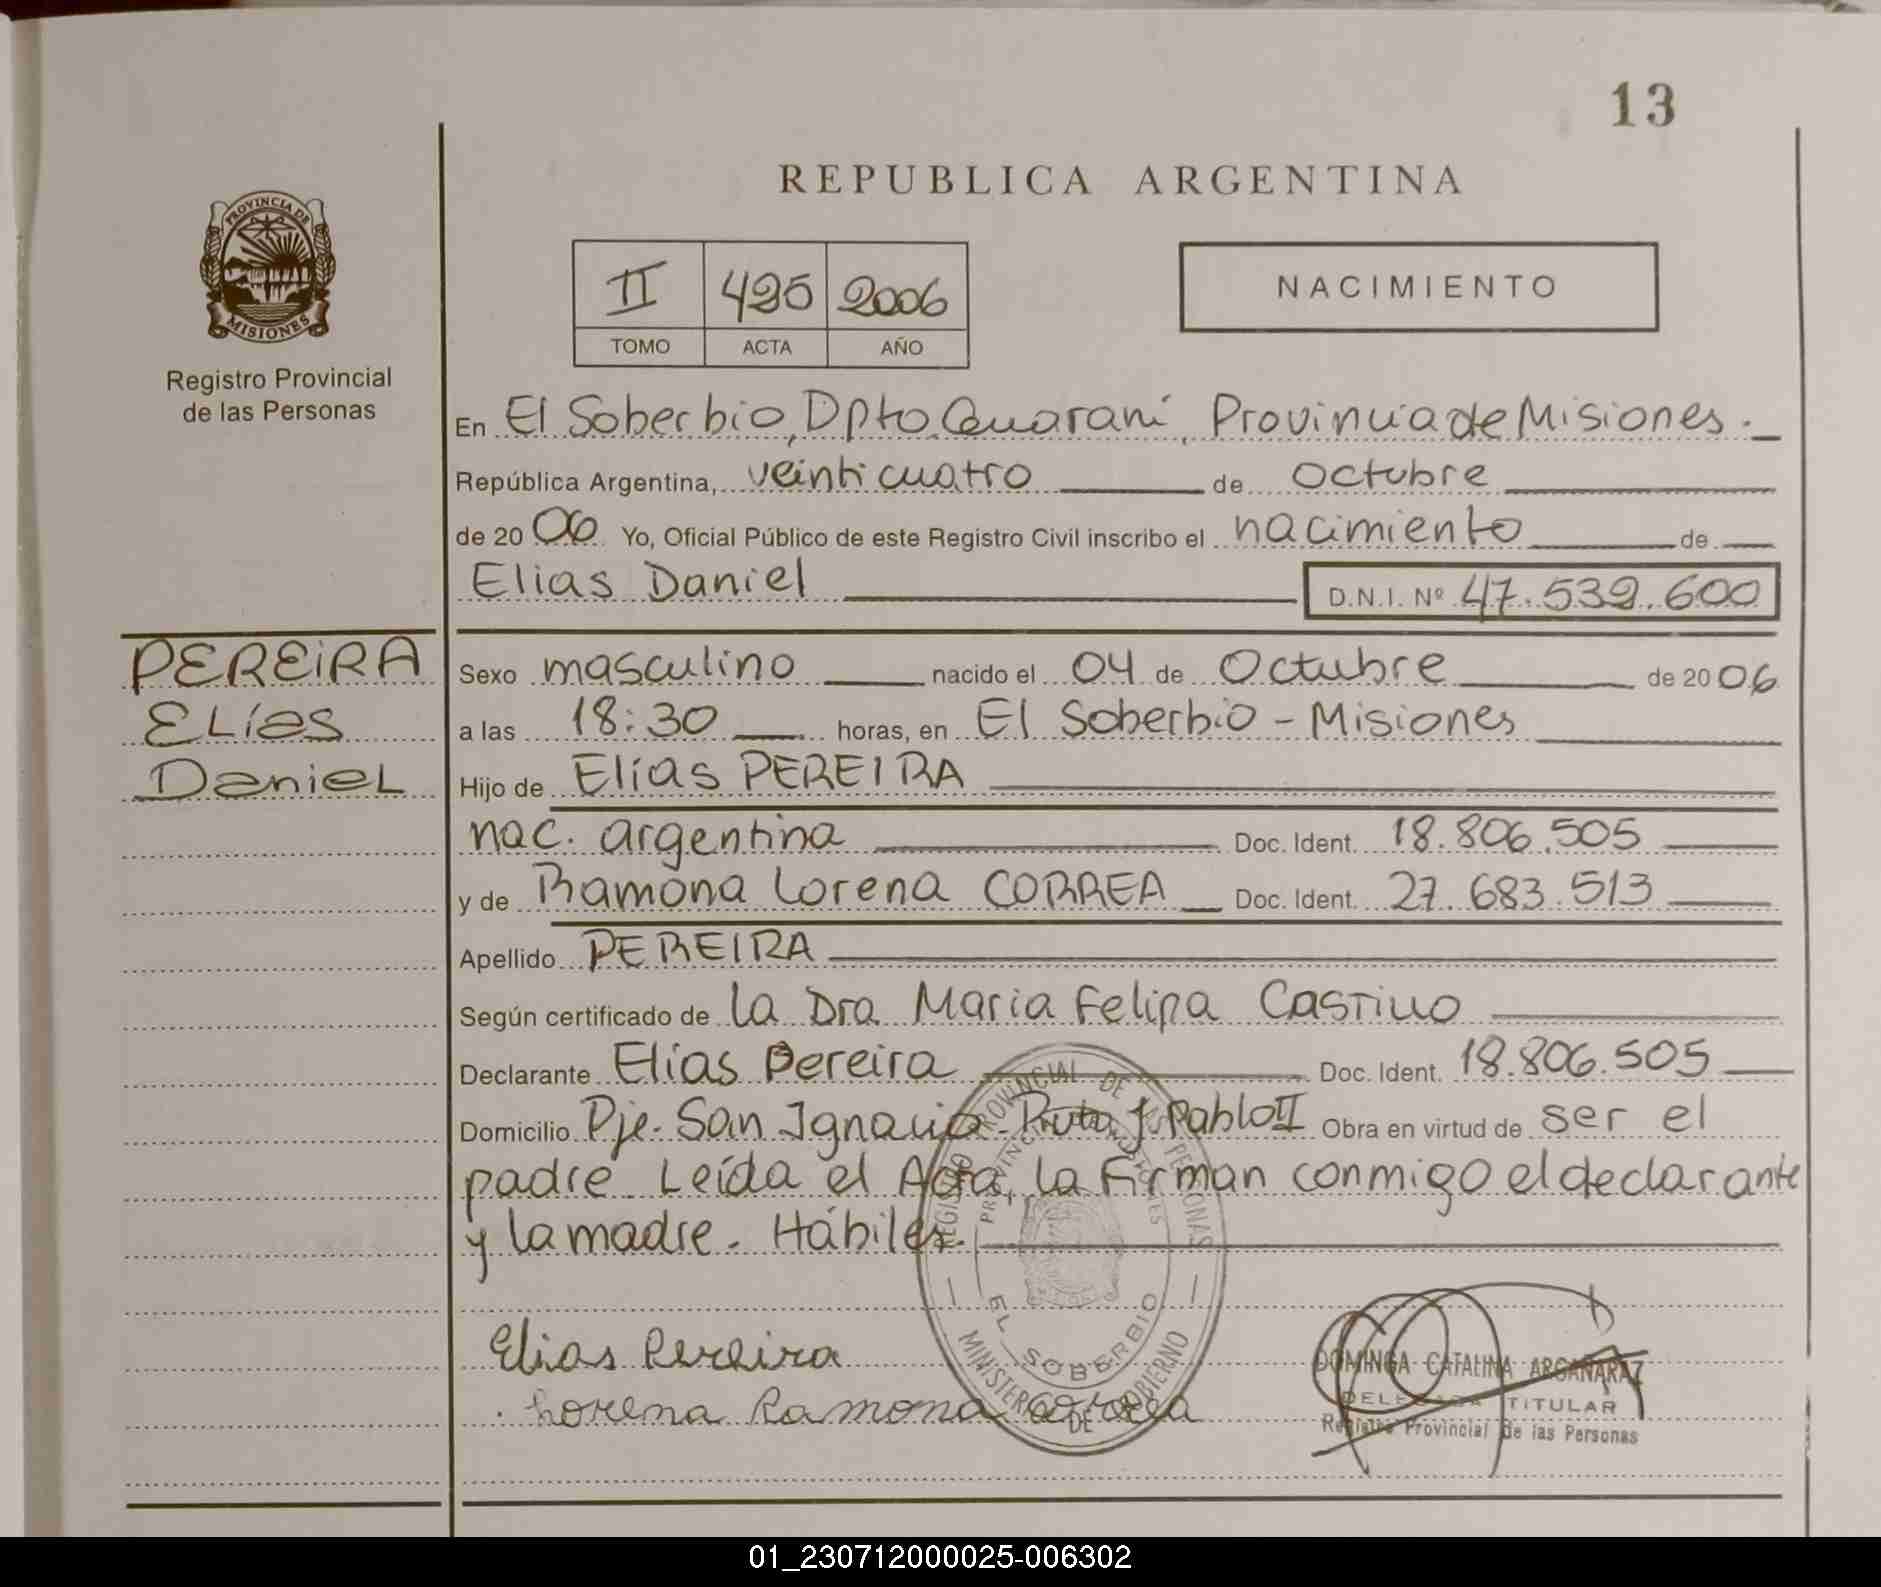 13
REPUBLICA ARGENTINA
PROVINCIA DE
MISIONES
Registro Provincial
de las Personas
II 425 2006
TOMO ACTA AÑO
NACIMIENTO
En El Soberbio, Dpto. Guaraní, Provincia de Misiones.
República Argentina, veinticuatro de Octubre
de 2006 Yo, Oficial Público de este Registro Civil inscribo el nacimiento de
Elias Daniel D.N.I. Nº 47.539.600
PEREIRA
ELías
DanieL
Sexo masculino nacido el 04 de Octubre de 2006
a las 18:30 horas, en El Soberbio - Misiones
Hijo de Elías PEREIRA
nac. argentina Doc. Ident. 18.806.505
y de Ramona Lorena CORREA Doc. Ident. 27.683.513
Apellido PEREIRA
Según certificado de la Dra Maria Felipa Castillo
Declarante Elías Pereira Doc. Ident. 18.806.505
Domicilio Pje. San Ignacio - Ruta J. Pablo II Obra en virtud de ser el
padre. Leída el Acta, la Firman conmigo el declarante
y la madre. Hábiles.
REGISTRO PROVINCIAL DE LAS PERSONAS
PROVINCIA DE MISIONES
EL SOBERBIO
MINISTERIO DE GOBIERNO
Elias Pereira
Lorena Ramona Correa
DOMINGA CATALINA ARGAÑARAZ
DELEGADA TITULAR
Registro Provincial de las Personas
01_230712000025-006302